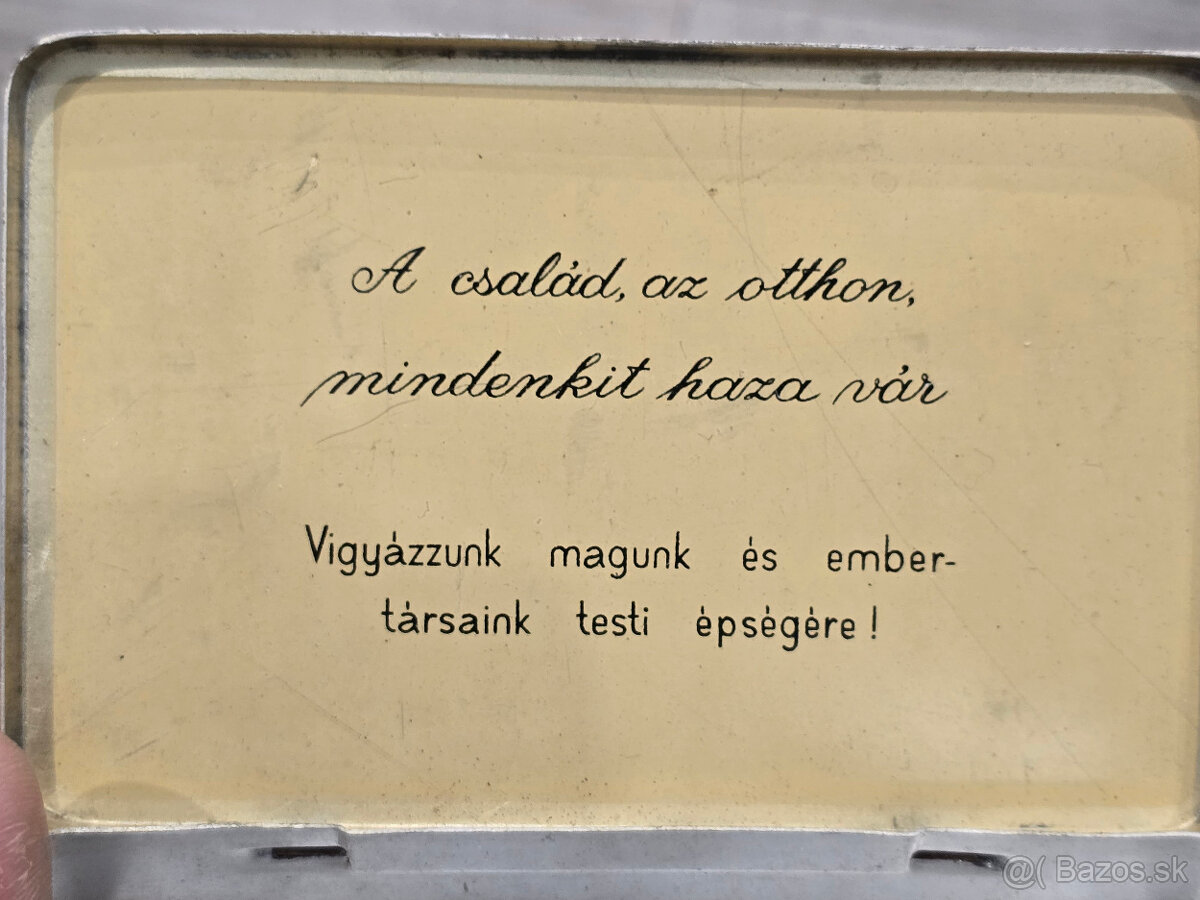 A család, az otthon,
mindenkit haza vár
Vigyázzunk magunk és ember-
társaink testi épségére!
@( Bazos.sk